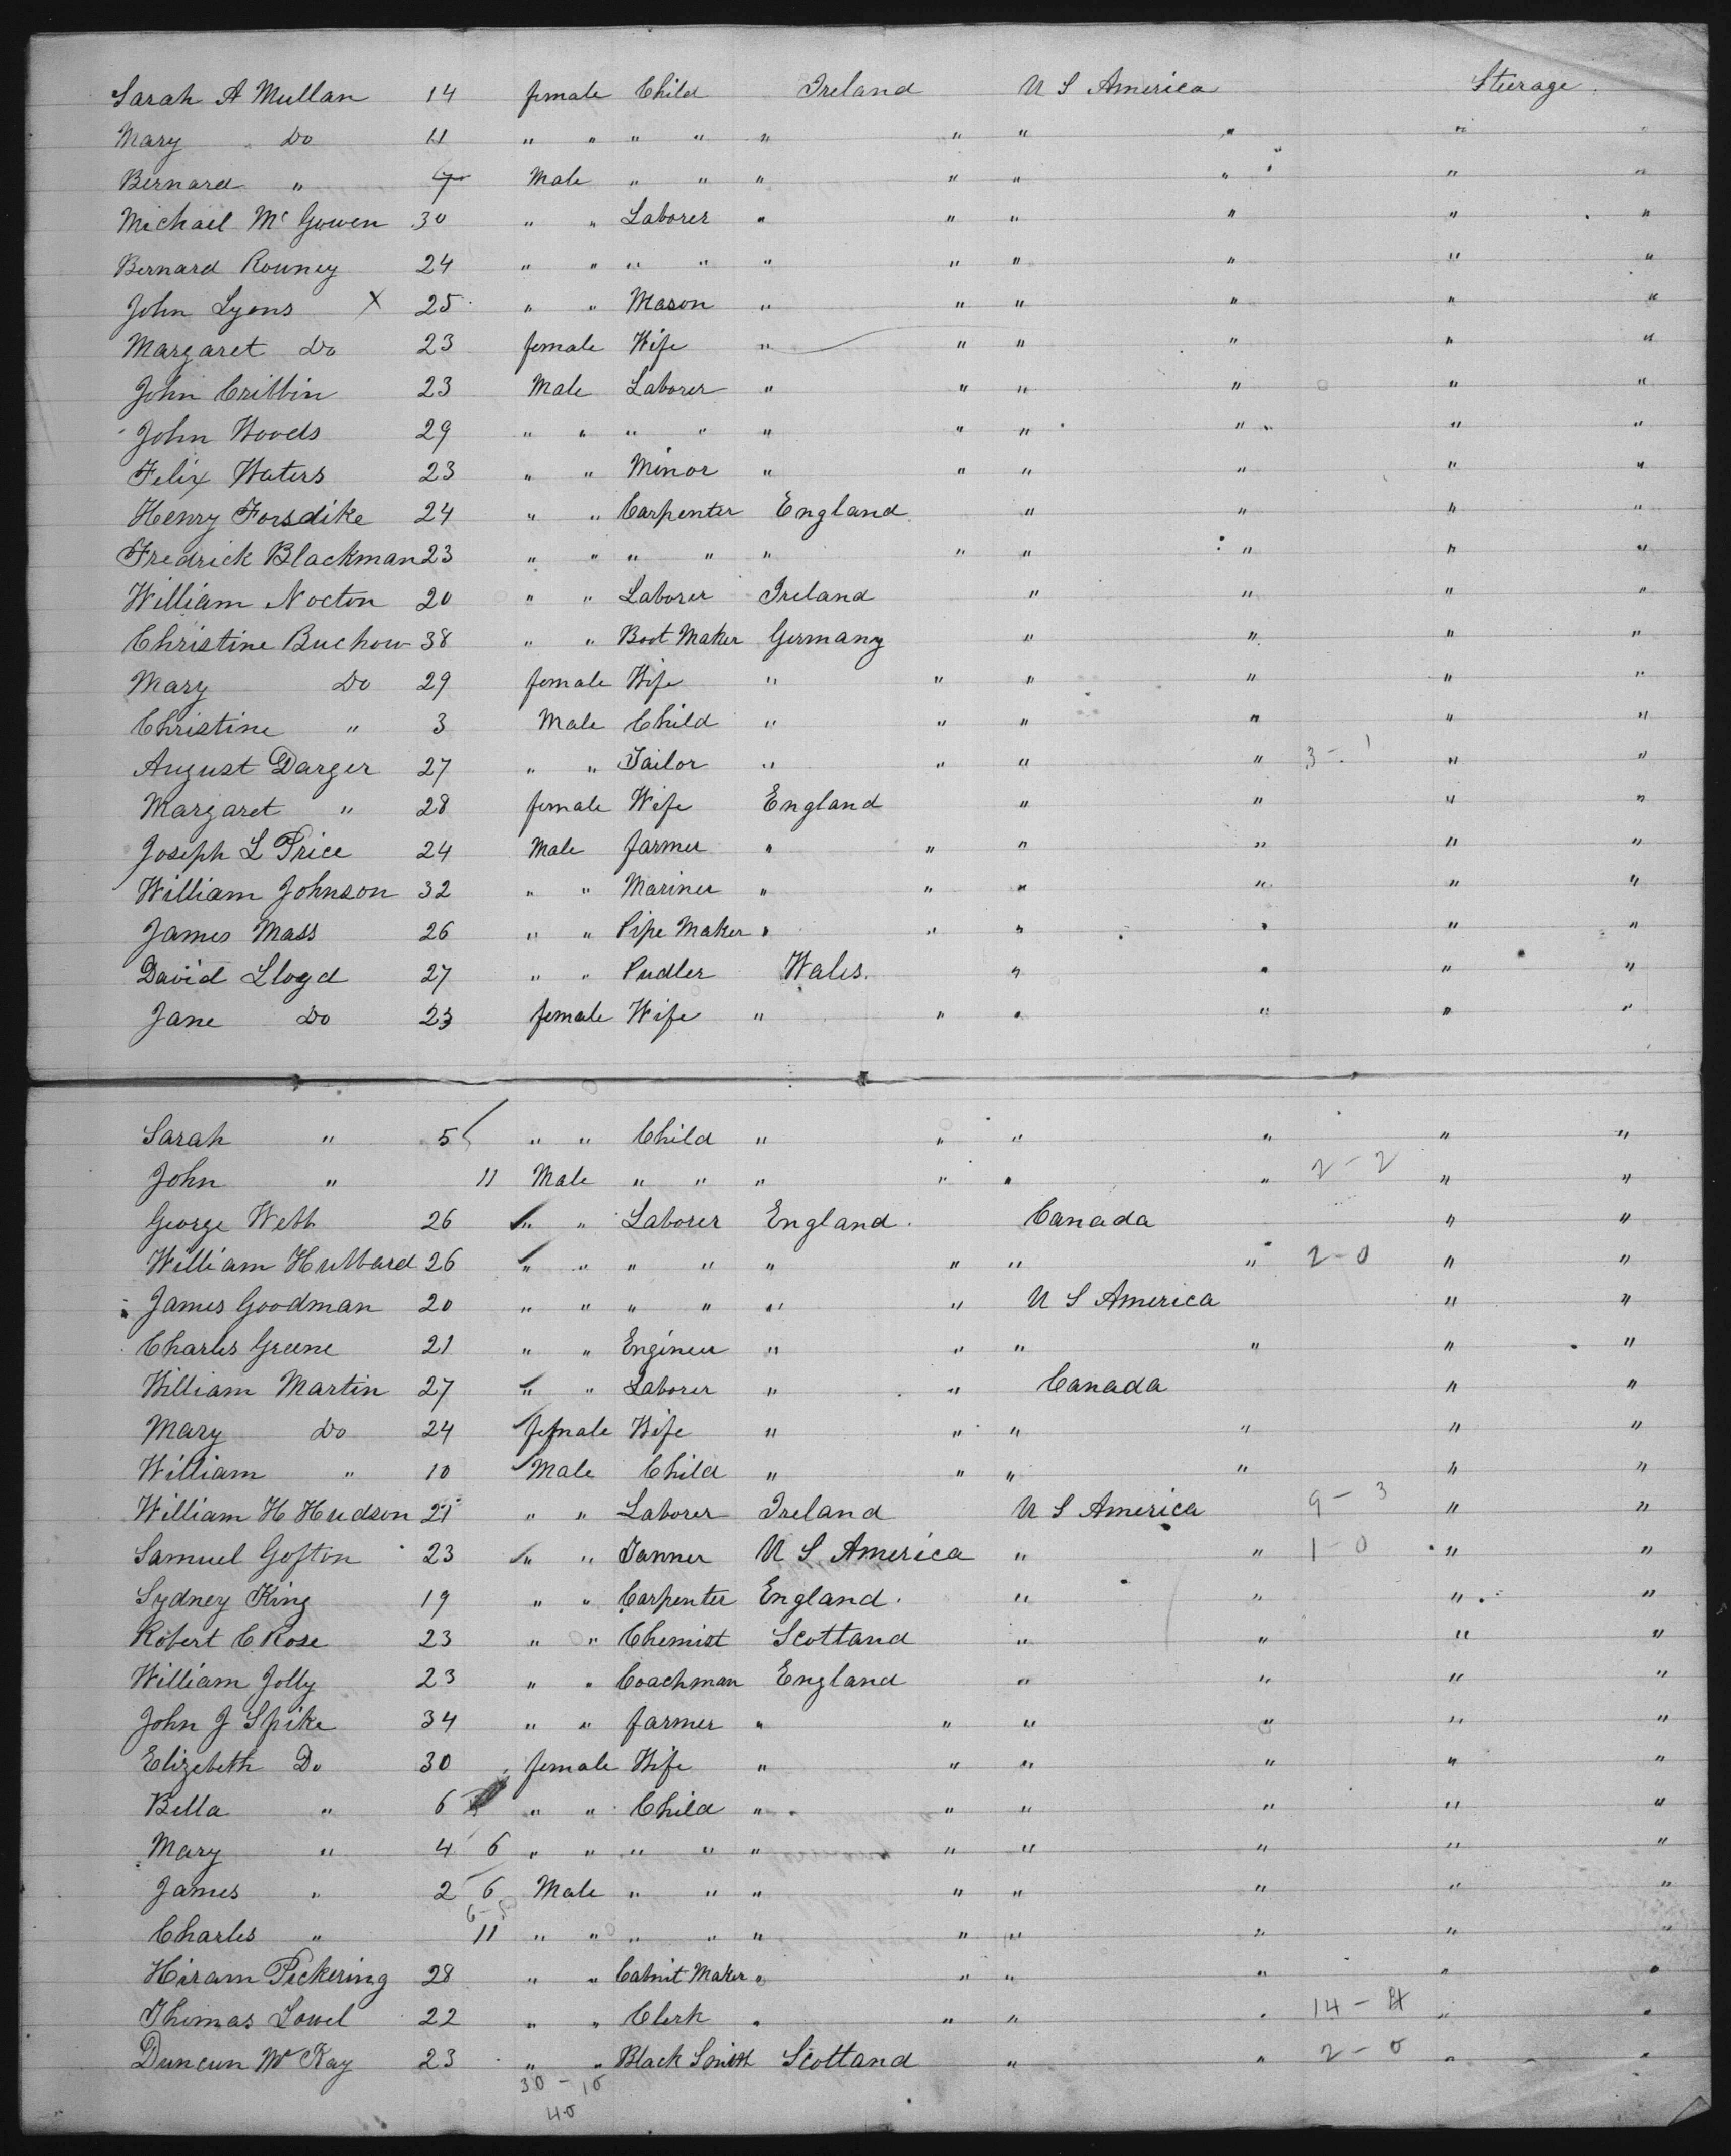 Sarah A Mullan 14 female Child Ireland U S America Steerage
Mary Do 11 " " " " " " " " " "
Bernard " 7 Male " " " " " " " "
Michael Mc Gowen 30 " " Laborer " " " " " "
Bernard Rouney 24 " " " " " " " " " "
John Lyons X 25 " " Mason " " " " " "
Margaret Do 23 female Wife " " " " " "
John Cribbin 23 Male Laborer " " " " " "
John Woods 29 " " " " " " " " " "
Felix Waters 23 " " Minor " " " " " "
Henry Forsdike 24 " " Carpenter England " " " "
Fredrick Blackman 23 " " " " " " " " " "
William Nocton 20 " " Laborer Ireland " " " "
Christine Buchow 38 " " Boot Maker Germany " " " "
Mary Do 29 female Wife " " " " " "
Christine " 3 Male Child " " " " " "
August Darger 27 " " Tailor " " " " 3 - 1 " "
Margaret " 28 female Wife England " " " "
Joseph L Price 24 Male farmer " " " " " "
William Johnson 32 " " Mariner " " " " " "
James Mass 26 " " Pipe Maker " " " " " "
David Lloyd 27 " " Pudler Wales. " " " "
Jane Do 23 female Wife " " " " " "
Sarah " 5 " " Child " " " " " "
John " 11 Male " " " " " " 2 - 2 " "
George Webb 26 " " Laborer England. Canada " "
William Hubbard 26 " " " " " " " " 2 - 0 " "
James Goodman 20 " " " " " " U S America " "
Charles Greene 21 " " Engineer " " " " " "
William Martin 27 " " Laborer " " Canada " "
Mary Do 24 female Wife " " " " " "
William " 10 Male Child " " " " " "
William H Hudson 21 " " Laborer Ireland U S America 9 - 3 " "
Samuel Gofton 23 " " Tanner U S America " " 1 - 0 " "
Sydney King 19 " " Carpenter England. " " " "
Robert C Rose 23 " " Chemist Scotland " " " "
William Jolly 23 " " Coachman England " " " "
John J Spike 34 " " farmer " " " " " "
Elizebeth Do 30 female Wife " " " " " "
Bella " 6 " " Child " " " " " "
Mary " 4 6 " " " " " " " " " "
James " 2 6 Male " " " " " " " "
Charles " 11 " " " " " " " " " "
Hiram Pickering 28 " " Cabnit Maker " " " " " "
Thomas Lowel 22 " " Clerk " " " " 14 - 4 " "
Duncun Mc Kay 23 " " Black Smith Scotland " " 2 - 0 " "
30 - 10
40